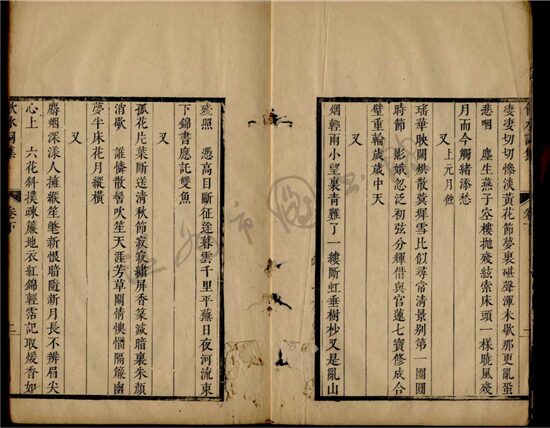 飲水詞集 卷下
淒淒切切慘淡黃花節夢裏碪聲渾未歇那更亂蛩
悲咽 塵生燕子空樓拋殘絃索床頭一樣曉風殘
月而今觸緒添愁
又 上元月蝕
瑤華映闕烘散蓂墀雪比似尋常清景別第一團圓
時節 影娥忽泛初弦分輝借與宮蓮七寶修成合
璧重輪歲歲中天
又
烟輕雨小望裏青難了一縷斷虹垂樹杪又是亂山
殘照 憑高目斷征途暮雲千里平蕪日夜河流東
下錦書應託雙魚
又
孤花片葉斷送清秋節寂寂繡屏香篆滅暗裏朱顏
消歇 誰憐散髻吹笙天涯芳草關情懊惱隔簾幽
夢半床花月縱橫
又
麝烟深漾人擁緱笙氅新恨暗隨新月長不辨眉尖
心上 六花斜撲疎簾地衣紅錦輕霑記取煖香如
飲水詞集 卷下 二